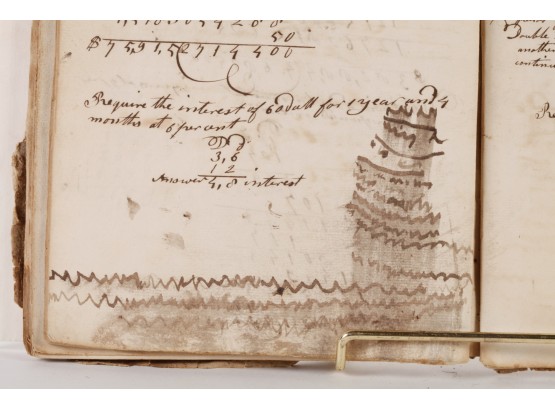 50
$75,91,52714400
Require the interest of 60 doll for 1 year and 4
months at 6 per cent
3,6
1 2
Answer 4,8 interest
Double
mothe
continu
Re